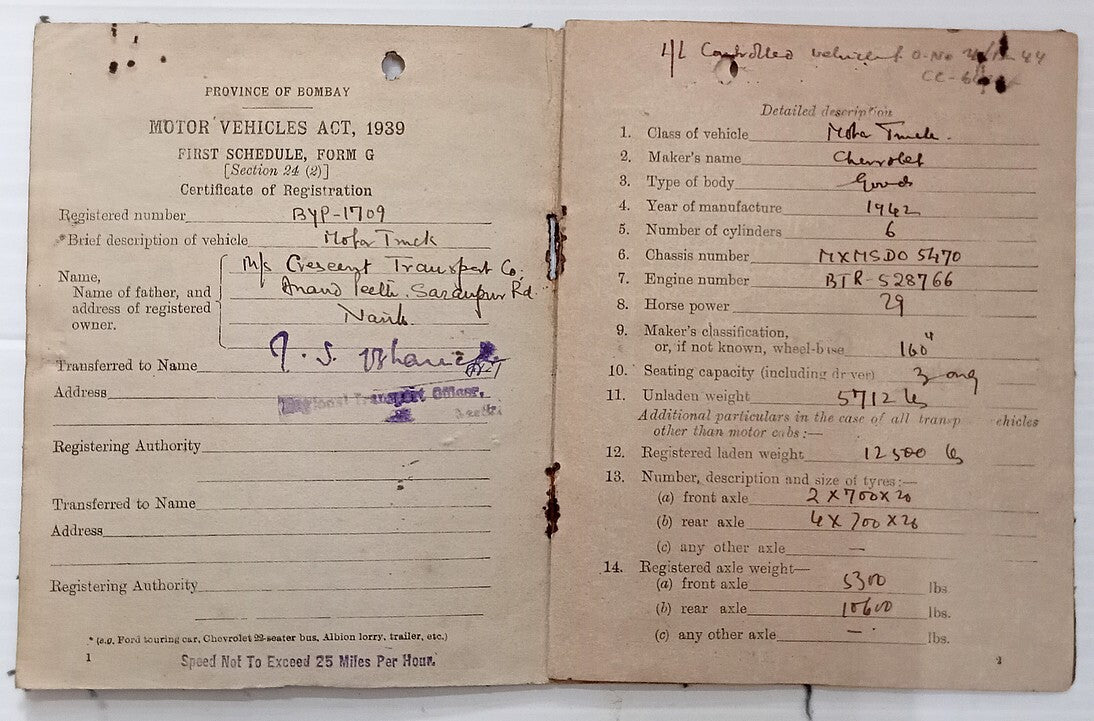 PROVINCE OF BOMBAY
MOTOR VEHICLES ACT, 1939
FIRST SCHEDULE, FORM G
[Section 24 (2)]
Certificate of Registration
Registered number BYP-1709
*Brief description of vehicle Motor Truck
Name,
Name of father, and
address of registered
owner.
M/s Crescent Transport Co.
Anand Peeth, Sarangpur Rd.
Nasik.
Transferred to Name
Address
Regional Transport Officer,
Registering Authority
Transferred to Name
Address
Registering Authority
* (e.g. Ford touring car, Chevrolet 22-seater bus, Albion lorry, trailer, etc.)
1
Speed Not To Exceed 25 Miles Per Hour.
Controlled vehicle
Detailed description
1. Class of vehicle Motor Truck.
2. Maker's name Chevrolet
3. Type of body Goods
4. Year of manufacture 1942
5. Number of cylinders 6
6. Chassis number MXMSDO 5470
7. Engine number BTR-528766
8. Horse power 29
9. Maker's classification,
or, if not known, wheel-base 160"
10. Seating capacity (including driver) 3 only
11. Unladen weight 5712 lbs
Additional particulars in the case of all transp ehicles
other than motor cabs :—
12. Registered laden weight 12500 lbs
13. Number, description and size of tyres:—
(a) front axle 2 X 700 X 20
(b) rear axle 4 X 700 X 20
(c) any other axle —
14. Registered axle weight—
(a) front axle 5300 lbs.
(b) rear axle 10600 lbs.
(c) any other axle — lbs.